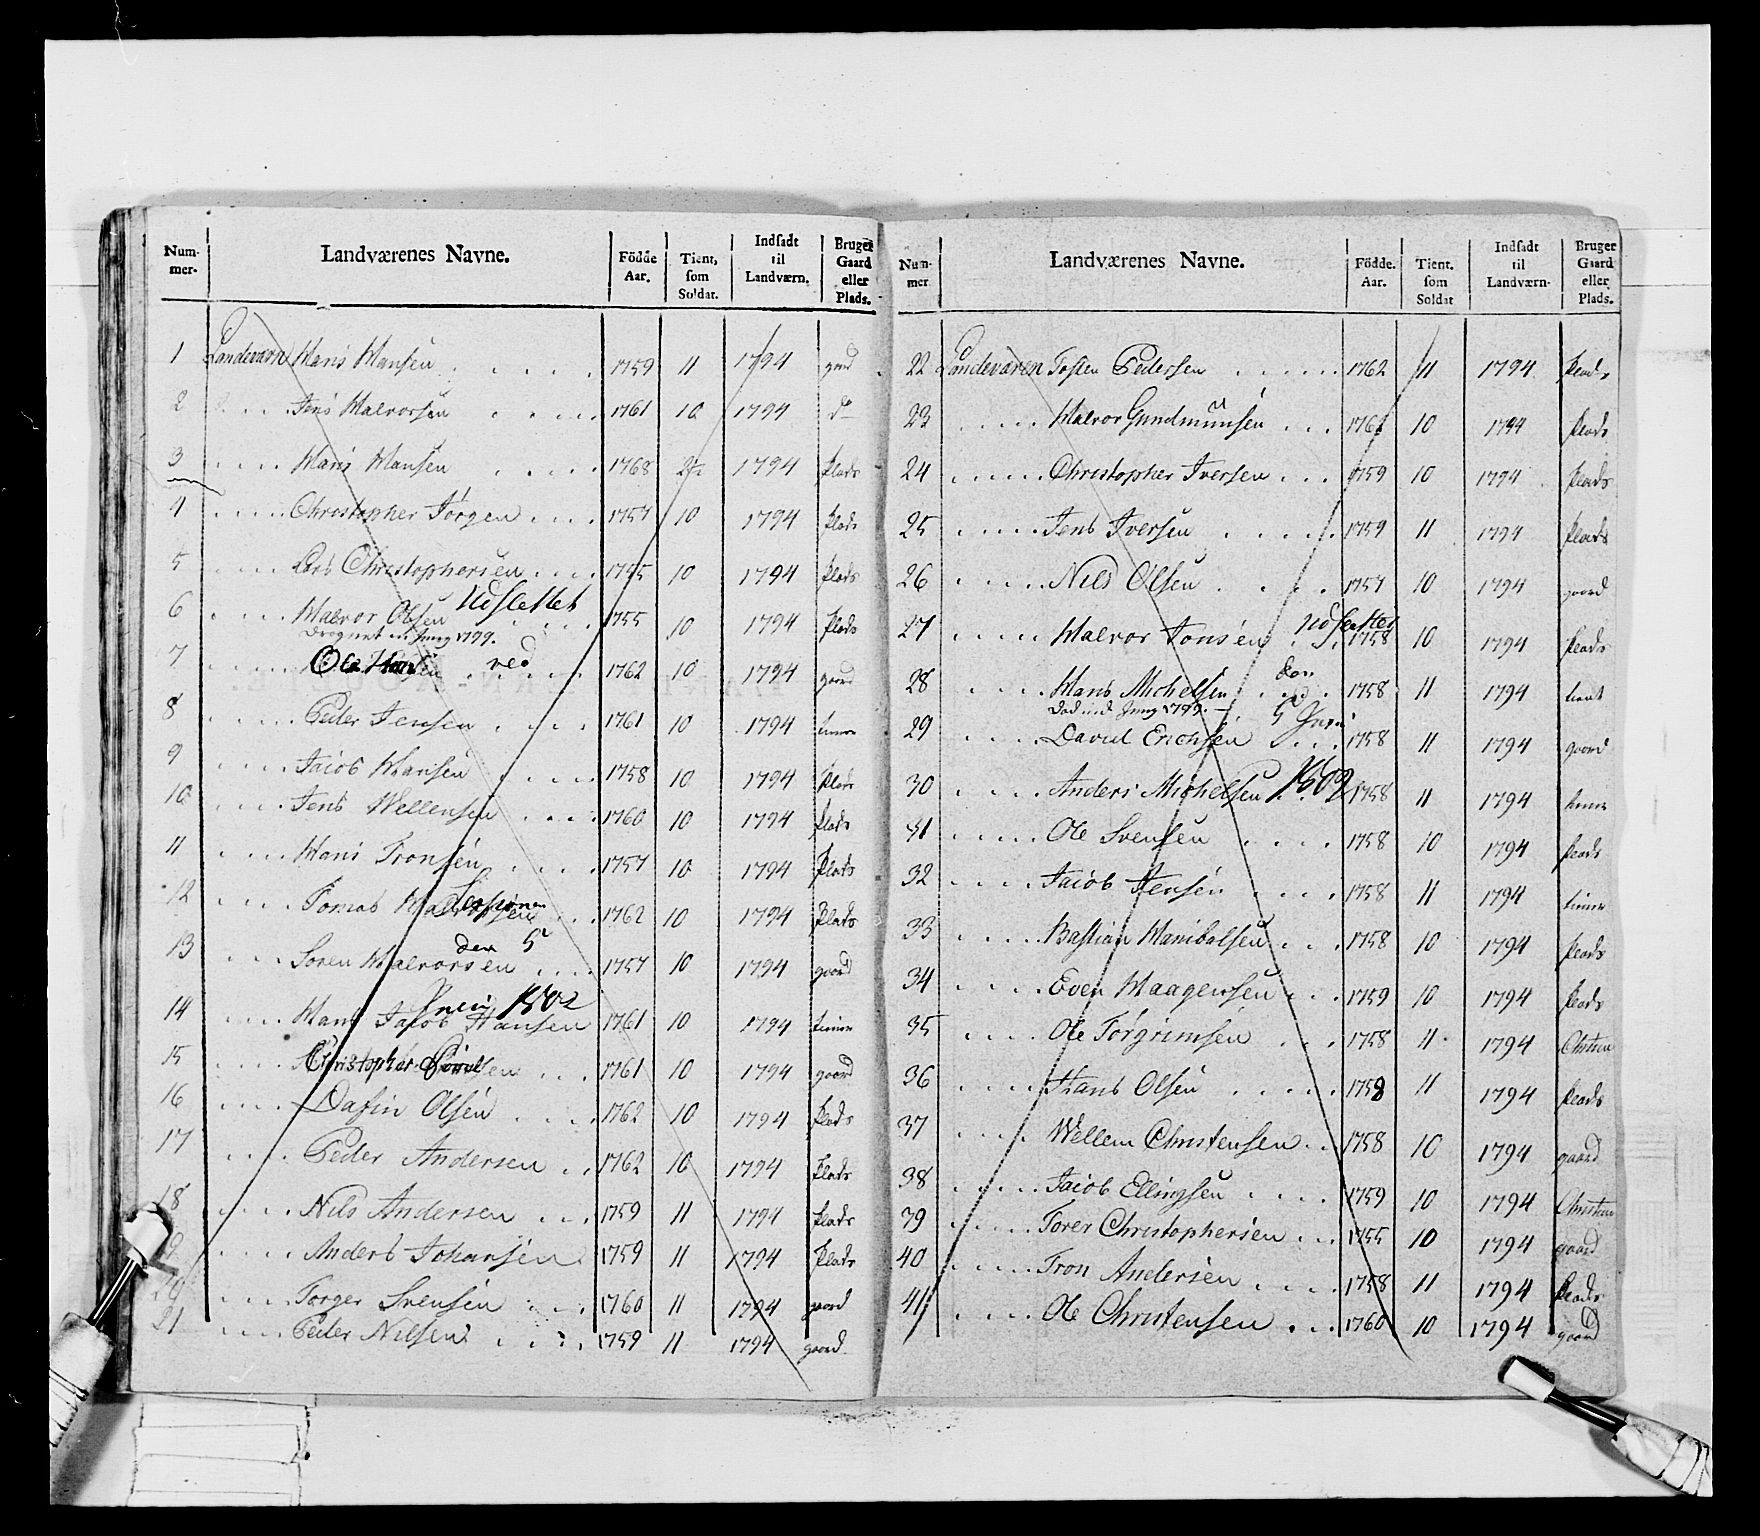 Num-mer. Landværenes Navne. Födde Aar. Tient, som Soldat. Indsadt til Landværn. Bruger Gaard eller Plads.
1 Landeværn Hans Hansen 1759 11 1794 gaard
2 Jens Halvorsen 1761 10 1794 do
3 Hans Hansen 1768 1794 Plads
4 Christopher Jörgen 1757 10 1794 Plads
5 Lars Christophersen 10 1794 Plads
6 Halvor Olsen Udslettet 1755 10 1794 Plads
1799.
7 Ole ved 1762 10 1794 gaard
8 Peder Jensen 1761 10 1794
9 Jacob Hansen 1758 10 1794 Plads
10 Jens Wellensen 1760 10 1794 Plads
11 Hans Tronsen 1757 10 1794 Plads
12 Tomas Sessionen 1762 10 1794 Plads
13 Soren Halvorsen den 5 1757 10 1794 gaard
14 Hans Jacob Hansen 1802 1761 10 1794
15 Christopher 1761 10 1794 gaard
16 Dafin Olsen 1762 10 1794 Plads
17 Peder Andersen 1762 10 1794 Plads
18 Nils Andersen 1759 11 1794 Plads
19 Anders Johansen 1759 11 1794 Plads
20 Torger Svensen 1760 11 1794 gaard
21 Peder Nilsen 1759 11 1794 gaard
Num-mer Landværenes Navne. Födde. Aar. Tient. som Soldat Indsadt til Landværn. Bruger Gaard eller Plads.
22 Landeværen Tosten Pedersen 1762 11 1794 Plads
23 Halvor Gundmunsen 10 1794 Plads
24 Christopher Iversen 1759 10 1794 Plads
25 Jens Iversen 1759 11 1794 Plads
26 Nils Olsen 1757 10 1794 gaard
27 Halvor Tonsen Udslettet 1758 10 1794 Plads
28 Hans Michelsen den 1758 11 1794
Död 1799. 5
29 David Erichsen 1758 11 1794 gaard
30 Anders Michelsen 1802 1758 11 1794
31 Ole Svensen 1758 10 1794 Plads
32 Jacob Jensen 1758 11 1794
33 Bastian Hanibalsen 1758 10 1794 Plads
34 Even Haagensen 1759 10 1794 Plads
35 Ole Törgrimsen 1758 11 1794
36 Hans Olsen 1758 11 1794 Plads
37 Wellem Christensen 1758 10 1794 gaard
38 Jacob Ellingsen 1759 10 1794
39 Torer Christophersen 1755 10 1794 gaard
40 Tron Andersen 1758 11 1794 Plads
41 Ole Christensen 1760 10 1794 gaard